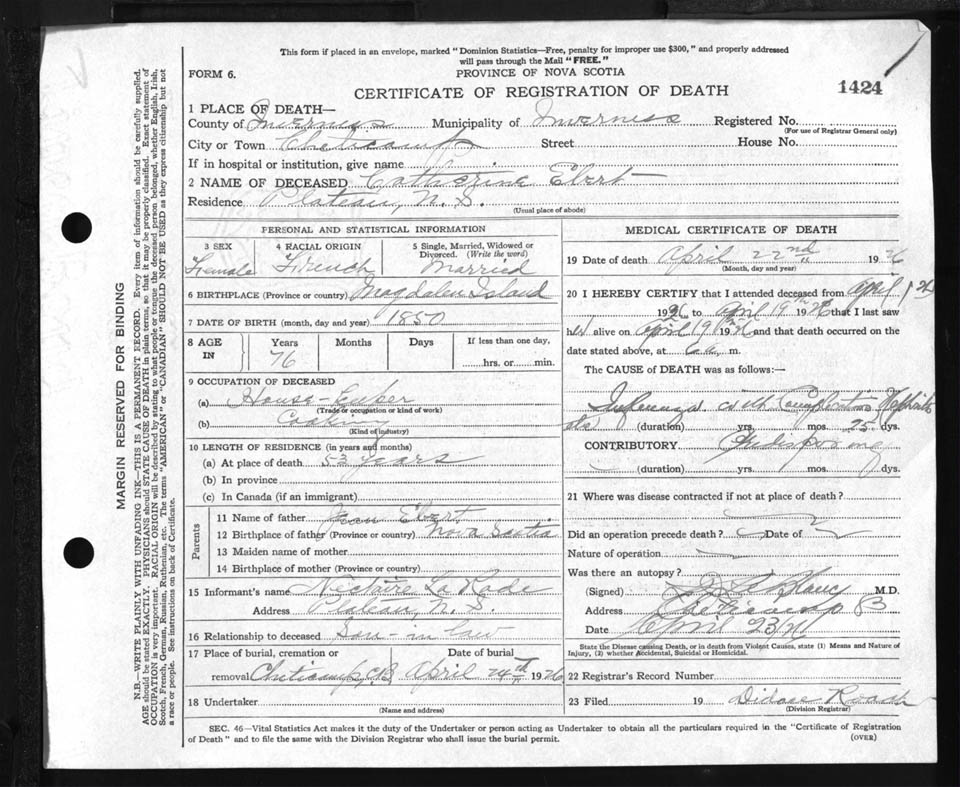 This form if placed in an envelope, marked "Dominion Statistics—Free, penalty for improper use $300," and properly addressed
will pass through the Mail "FREE."
FORM 6.
PROVINCE OF NOVA SCOTIA
CERTIFICATE OF REGISTRATION OF DEATH
1424
1 PLACE OF DEATH—
County of Inverness Municipality of Inverness Registered No.
(For use of Registrar General only)
City or Town Cheticamp Street House No.
If in hospital or institution, give name
2 NAME OF DECEASED Catherine Ebert
Residence Plateau, N. S.
(Usual place of abode)
PERSONAL AND STATISTICAL INFORMATION
3 SEX 4 RACIAL ORIGIN 5 Single, Married, Widowed or
Divorced. (Write the word)
Female French Married
6 BIRTHPLACE (Province or country) Magdalen Island
7 DATE OF BIRTH (month, day and year) 1850
8 AGE IN Years Months Days If less than one day,
76 hrs. or min.
9 OCCUPATION OF DECEASED
(a) House-Keeper
(Trade or occupation or kind of work)
(b) Cooking
(Kind of industry)
10 LENGTH OF RESIDENCE (in years and months)
(a) At place of death 53 years
(b) In province
(c) In Canada (if an immigrant)
Parents
11 Name of father Jean Ebert
12 Birthplace of father (Province or country) Nova Scotia
13 Maiden name of mother
14 Birthplace of mother (Province or country)
15 Informant's name La Rade
Address Plateau, N. S.
16 Relationship to deceased Son-in law
17 Place of burial, cremation or Date of burial
removal Cheticamp, C.B. April 24th 1926
18 Undertaker
(Name and address)
MEDICAL CERTIFICATE OF DEATH
19 Date of death April 22nd 1926
(Month, day and year)
20 I HEREBY CERTIFY that I attended deceased from April 1st
1926 to April 19th 1926 that I last saw
her alive on April 19 1926 and that death occurred on
date stated above, at 6 a. m.
The CAUSE OF DEATH was as follows:—
Influenza with Complication Nephritis
(duration) yrs. mos. 25 dys.
CONTRIBUTORY
(duration) yrs. mos. dys.
21 Where was disease contracted if not at place of death?
Did an operation precede death? Date of
Nature of operation
Was there an autopsy?
(Signed) M.D.
Address Cheticamp
Date April 23/26
State the Disease causing Death, or in death from Violent Causes, state (1) Means and Nature of
Injury, (2) whether Accidental, Suicidal or Homicidal.
22 Registrar's Record Number
23 Filed 19 Didace Roach
(Division Registrar)
SEC. 46—Vital Statistics Act makes it the duty of the Undertaker or person acting as Undertaker to obtain all the particulars required in the "Certificate of Registration
of Death" and to file the same with the Division Registrar who shall issue the burial permit.
(OVER)
MARGIN RESERVED FOR BINDING
N.B.—WRITE PLAINLY WITH UNFADING INK—THIS IS A PERMANENT RECORD. Every item of information should be carefully supplied.
AGE should be stated EXACTLY. PHYSICIANS should STATE CAUSE OF DEATH in plain terms, so that it may be properly classified. Exact statement of
OCCUPATION is very important. RACIAL ORIGIN will be described by stating to what people or tongue the deceased person belonged, whether English, Irish,
Scotch, French, German, Russian, Ruthenian, etc. The terms "AMERICAN" or "CANADIAN" SHOULD NOT BE USED as they express citizenship but not
a race or people. See instructions on back of Certificate.